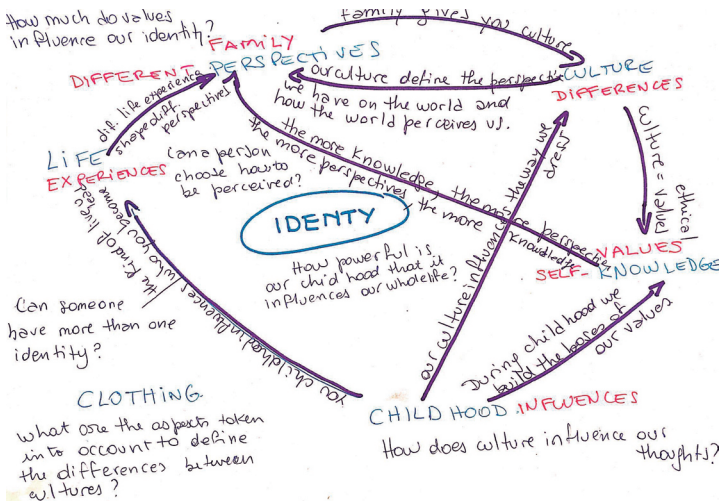 How much do values
influence our identity?
FAMILY
DIFFERENT PERSPECTIVES
Family gives you culture
our culture define the perspectives
we have on the world and
how the world perceives us.
CULTURE
DIFFERENCES
dif. life experience
shape diff
perspectives
LIFE
EXPERIENCES
Can a person
choose how to
be perceived?
the more knowledge, the more perspective
the more perspectives, the more knowledge
our culture influence the way we dress
culture = value
ethical
IDENTY
VALUES
SELF-KNOWLEDGE
How powerful is
our child hood that it
influences our whole life?
the kind of lives
you childhood influences who you become
Can someone
have more than one
identity?
During childhood we
build the bases of
our values
CLOTHING
CHILDHOOD INFWENCES
what are the aspects taken
into account to define
the differences between
cultures?
How does culture influence our
thoughts?